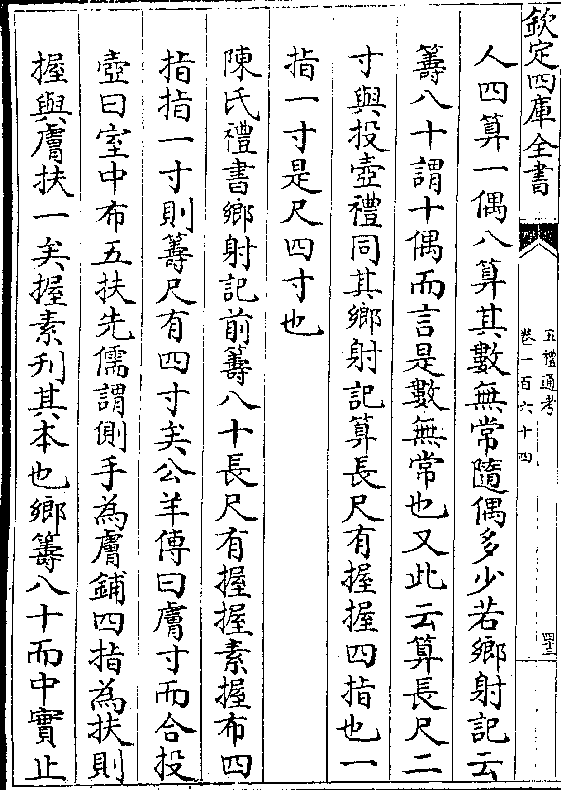 欽定四庫全書
五禮通考
卷一百六十四
四三
人四算一偶八算其數無常隨偶多少若鄉射記云
籌八十謂十偶而言是數無常也又此云算長尺二
寸與投壺禮同其鄉射記算長尺有握握四指也一
指一寸是尺四寸也
陳氏禮書鄉射記前籌八十長尺有握握素握布四
指指一寸則籌尺有四寸矣公羊傳曰膚寸而合投
壺曰室中布五扶先儒謂側手為膚鋪四指為扶則
握與膚扶一矣握素刋其本也鄉籌八十而中實止